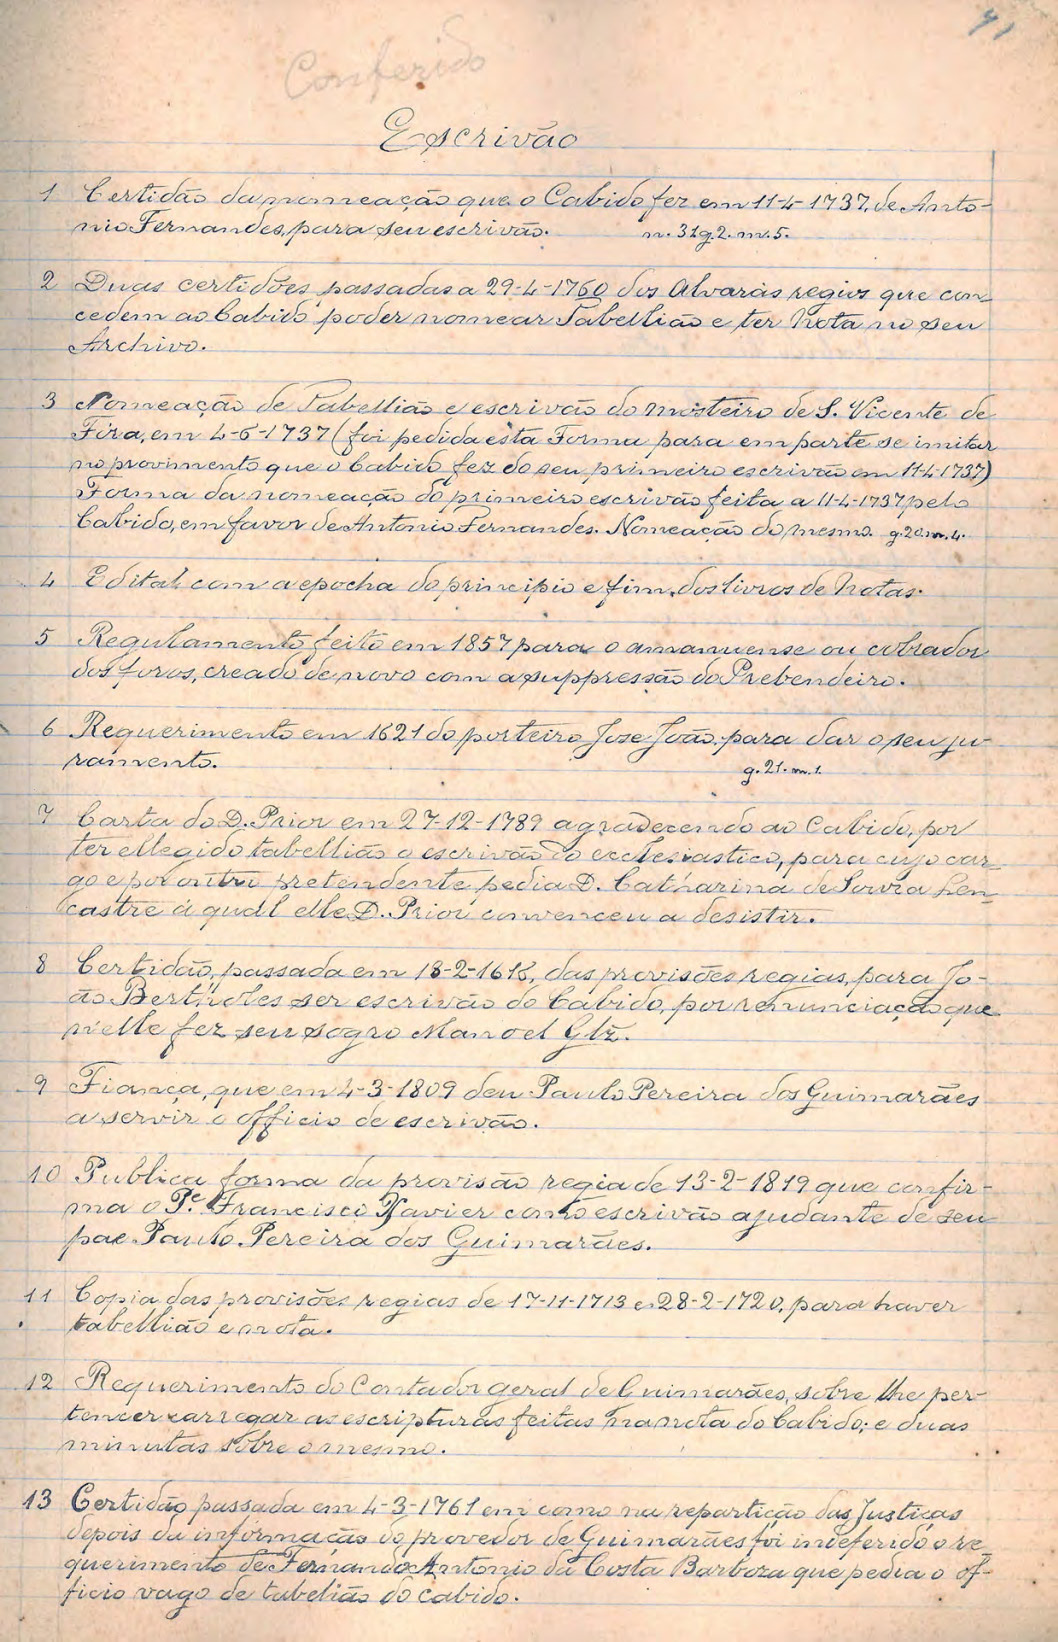 71
Conferido
Escrivão
1 Certidão da nomeação que o Cabido fez em 11-4-1737, de Anto-
nio Fernandes, para seu escrivão. n. 31 g. 2. m. 5.
2 Duas certidões passadas a 29-4-1760 dos Alvarás regios que con-
cedem ao Cabido poder nomear Tabellião e ter Nota no seu
Archivo.
3 Nomeação de Tabellião e escrivão do mosteiro de S. Vicente de
Fóra, em 4-6-1737 (foi pedida esta Forma para em parte se imitar
no provimento que o Cabido fez do seu primeiro escrivão em 11-4-1737)
Forma da nomeação do primeiro escrivão feita a 11-4-1737 pelo
Cabido, em favor de Antonio Fernandes. Nomeação do mesmo. g. 20. m. 4.
4 Edital com a epocha do principio e fim, dos livros de Notas.
5 Regulamento feito em 1857 para o amanuense ou cobrador
dos foros, creado de novo com a suppressão do Prebendeiro.
6 Requerimento em 1621 do porteiro Jose João, para dar o seu ju-
ramento. g. 21. m. 1.
7 Carta do D. Prior em 27-12-1789 agradecendo ao Cabido, por
ter ellegido tabellião o escrivão do ecclesiastico, para cujo car-
go e por outro pretendente pedia D. Catharina de Souza Len-
castre á qual elle D. Prior convenceu a desistir.
8 Certidão, passada em 18-2-1618, das provisões regias, para Jo-
ão Bertholes ser escrivão do Cabido, por renunciação que
n'elle fez seu sogro Manoel Glz.
9 Fiança, que em 4-3-1809 deu Paulo Pereira dos Guimarães
a servir o officio de escrivão.
10 Publica forma da provisão regia de 13-2-1819 que confir-
ma o Pe. Francisco Xavier como escrivão ajudante de seu
pae Paulo Pereira dos Guimarães.
11 Copia das provisões regias de 17-11-1713 e 28-2-1720, para haver
tabellião e nota.
12 Requerimento do Contador geral de Guimarães, sobre lhe per-
tencer carregar as escripturas feitas na nota do Cabido; e duas
minutas sobre o mesmo.
13 Certidão passada em 4-3-1761 em como na repartição das Justiças
depois da informação do provedor de Guimarães foi indeferido o re-
querimento de Fernando Antonio da Costa Barboza que pedia o of-
ficio vago de tabelião do cabido.